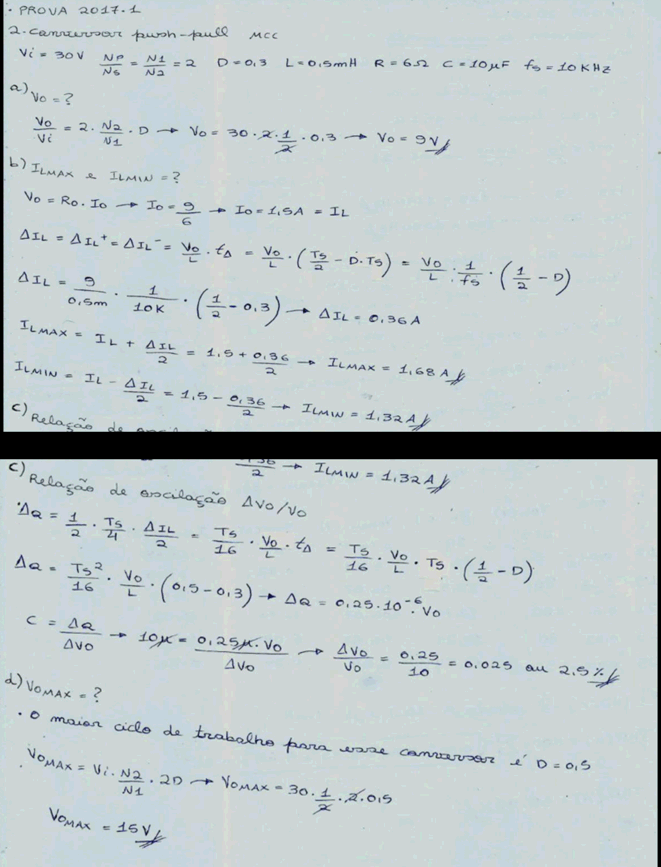 · PROVA 2017.1
2. Conversor push-pull MCC
Vi = 30V NP/NS = N1/N2 = 2 D = 0,3 L = 0,5mH R = 6Ω C = 10µF fs = 10KHz
a) Vo = ?
Vo/Vi = 2 · N2/N1 · D → Vo = 30 · 2 · 1/2 · 0,3 → Vo = 9V
b) ILMAX e ILMIN = ?
Vo = Ro · Io → Io = 9/6 → Io = 1,5A = IL
ΔIL = ΔIL⁺ = ΔIL⁻ = Vo/L · tΔ = Vo/L · (Ts/2 - D·Ts) = Vo/L · 1/fs · (1/2 - D)
ΔIL = 9/0,5m · 1/10K · (1/2 - 0,3) → ΔIL = 0,36A
ILMAX = IL + ΔIL/2 = 1,5 + 0,36/2 → ILMAX = 1,68A
ILMIN = IL - ΔIL/2 = 1,5 - 0,36/2 → ILMIN = 1,32A
c) Relação de oscilação
0,36/2 → ILMIN = 1,32A
c) Relação de oscilação ΔVo/Vo
· ΔQ = 1/2 · Ts/4 · ΔIL/2 = Ts/16 · Vo/L · tΔ = Ts/16 · Vo/L · Ts · (1/2 - D)
ΔQ = Ts²/16 · Vo/L · (0,5 - 0,3) → ΔQ = 0,25·10⁻⁶·Vo
C = ΔQ/ΔVo → 10µ = 0,25µ·Vo/ΔVo → ΔVo/Vo = 0,25/10 = 0,025 ou 2,5%
d) VOMAX = ?
· O maior ciclo de trabalho para esse conversor é D = 0,5
VOMAX = Vi · N2/N1 · 2D → VOMAX = 30 · 1/2 · 2 · 0,5
VOMAX = 15V